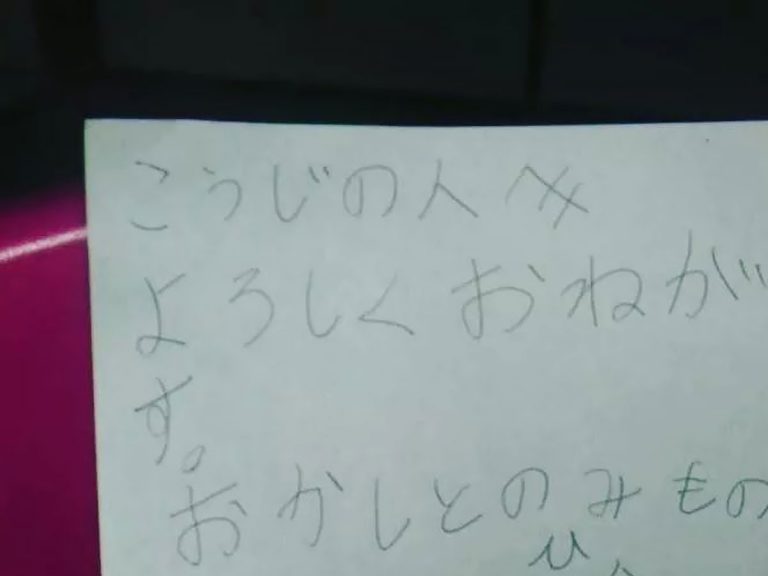 こうじの人へ
よろしくおねが
す。
おかしとのみもの
ひ